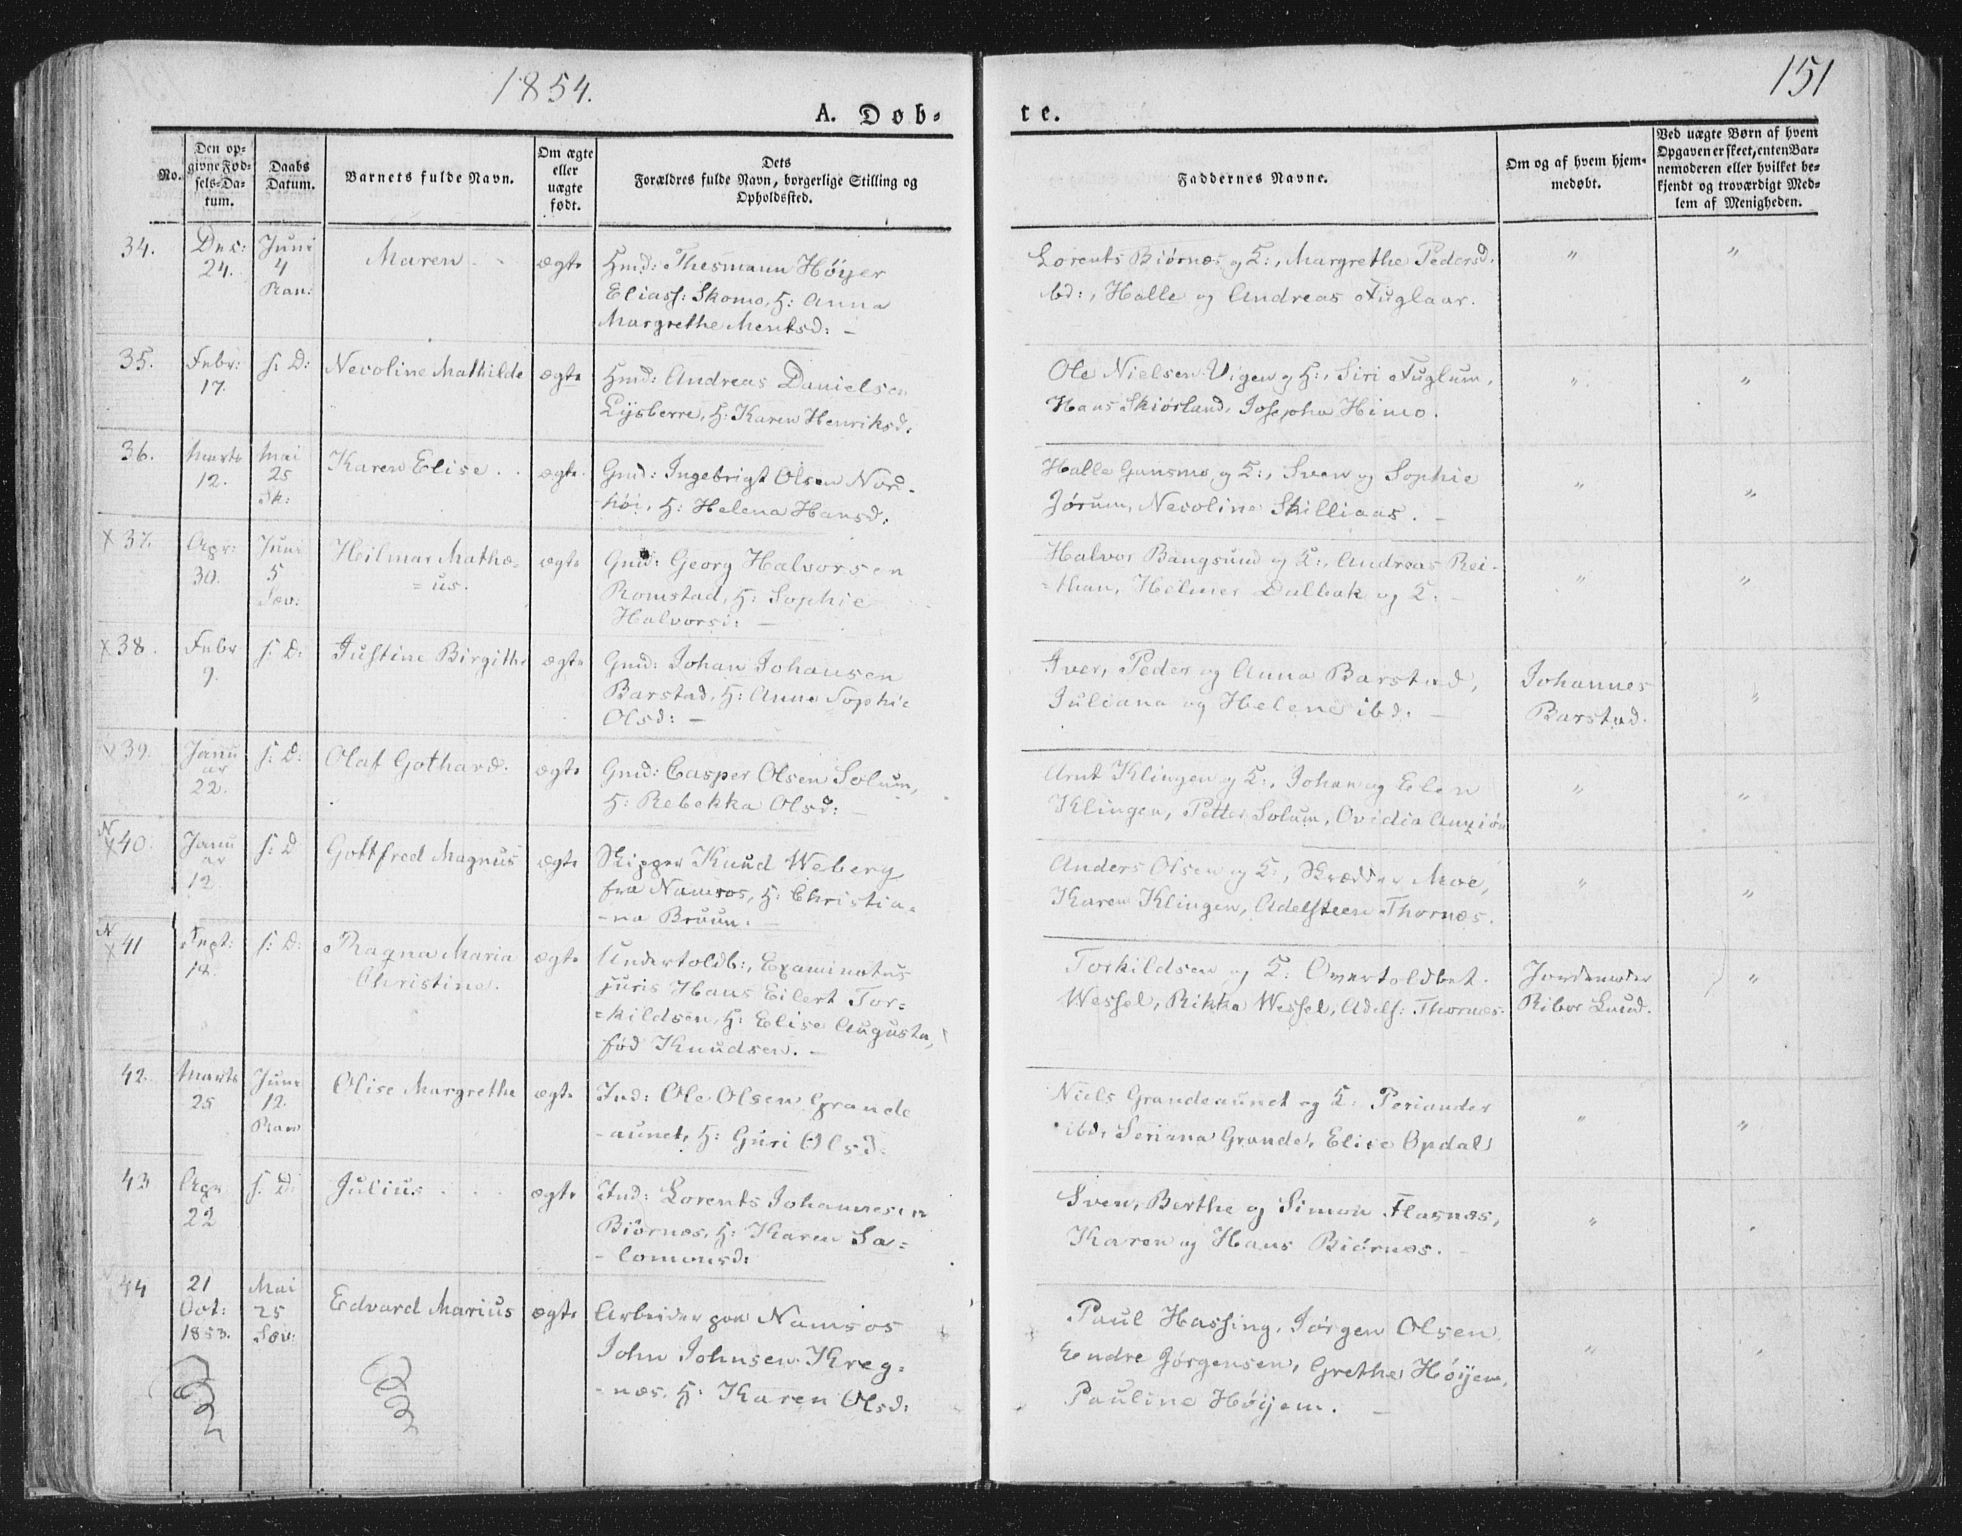 1854.
151
A. Døb-
te.
No.
Den op-
givne Fød-
sels-Da-
tum.
Daabs
Datum.
Barnets fulde Navn.
Om ægte
eller
uægte
født.
Dets
Forældres fulde Navn, borgerlige Stilling og
Opholdssted.
Faddernes Navne.
Om og af hvem hjem-
medøbt.
Ved uægte Børn af hvem
Opgaven er skeet, enten Bar-
nemoderen eller hvilket be-
kjendt og troværdigt Med-
lem af Menigheden.
34.
Dec:
24.
Juni
4
Ran:
Maren
ægte
Hmd: Thesmann Høyer
Eliass: Skomo, H: Anna
Margrethe Mentsd: -
Lorents Biørnæs og K:, Margrethe Pedersd.
ibd:, Halle og Andreas Fuglaar.
"
"
35.
Febr:
17.
s: D:
Necoline Mathilde
ægte
Hmd: Andreas Danielsen
Lysberre, H: Karen Henriksd.
Ole Nielsen Vigen og H:, Siri Fuglum,
Hans Skiørland, Josepha Himo.
"
"
36.
Marts
12.
Mai
25
Sk:
Karen Elise
ægte
Gmd: Ingebrigt Olsen Nord-
høi, H: Helena Hansd.
Halle Gansmo og K:, Sven og Sophie
Jørum, Necoline Skilliaas. -
"
"
x 37.
Apr:
30.
Juni
5
Sæv:
Hilmar Mathæ-
=us.
ægte
Gmd: Georg Halvorsen
Romstad, H: Sophie
Halvorsd: -
Halvor Bangsund og K:, Andreas Rei-
=than, Helmer Dalbak og K. -
"
"
x 38.
Febr
9.
s: D:
Justine Birgithe
ægte
Gmd: Johan Johansen
Barstad, H: Anna Sophie
Olsd: -
Iver, Peder og Anna Barstad,
Juliana og Helene ibd: -
Johannes
Barstad.
"
39.
Janu
ar
22.
s: D:
Olaf Gothard.
ægte
Gmd: Casper Olsen Solum,
H: Rebekka Olsd: -
Arnt Klingen og K:, Johan og Elen
Klingen, Petter Solum, Ovidia
"
"
N
x 40.
Janu
ar
12
s: D
Gottfred Magnus
ægte
Skipper Knud Weberg
fra Namsos, H: Christia-
-na Bruun. -
Anders Olsen og K:, Skrædder Moe,
Karen Klingen, Adelsteen Thornæs.
"
"
N
x 41
Sept:
14.
s: D:
Ragna Maria
Christine.
ægte
Undertoldb:, Examinatus
juris Hans Eilert Tor-
=kildsen, H: Elise Augusta,
fød Knudsen. -
Torkildsen og K: Overtoldbet.
Wessel, Rikka Wessel, Adels: Thornæs.
Jordemoder
Ribor Lund.
"
42.
Marts
25
Juni
12.
Ran
Olise Margrethe
ægte
Ind: Ole Olsen Grande
-aunet, H: Guri Olsd.
Niels Grandeaunet og K: Periander
ibd, Seriana Grande, Elise Opdal
"
"
43
Apr
22
s: D:
Julius
ægte
Ind: Lorents Johannesen
Biørnæs, H: Karen Sa=
-lomonsd:
Sven, Berthe og Simon Flasnæs,
Karen og Hans Biørnæs. -
"
"
44
21
Oct:
1853.
Mai
25
Sæv:
Edvard Marius
ægte
Arbeider paa Namsos
John Johnsen Kreg-
-næs, H: Karen Olsd:
Paul Hassing, Jørgen Olsen,
Endre Jørgensen, Grethe Høyem,
Pauline Høyem. -
"